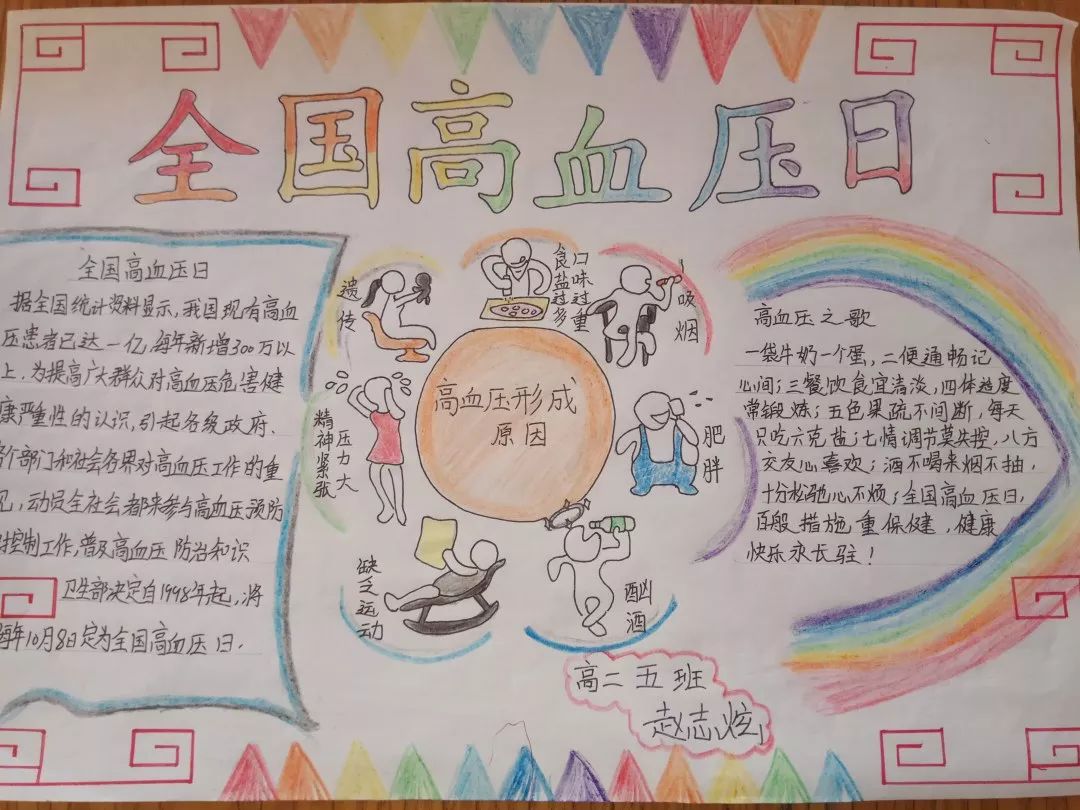 全国高血压日
全国高血压日
据全国统计资料显示，我国现有高血
压患者已达一亿，每年新增300万以
上，为提高广大群众对高血压危害健
康严重性的认识，引起各级政府、
各个部门和社会各界对高血压工作的重
视，动员全社会都来参与高血压预防
控制工作，普及高血压防治知识
卫生部决定自1998年起，将
每年10月8日定为全国高血压日。
遗传
口味过重
食盐过多
吸烟
肥胖
酗酒
缺乏运动
压力大
精神紧张
高血压形成
原因
高血压之歌
一袋牛奶一个蛋，二便通畅记
心间；三餐饮食宜清淡，四体适度
常锻炼；五色果疏不间断，每天
只吃六克盐；七情调节莫失控，八方
交友心喜欢；酒不喝来烟不抽，
十分松弛心不烦；全国高血压日，
百般措施重保健，健康
快乐永长驻！
高二五班
赵志炫